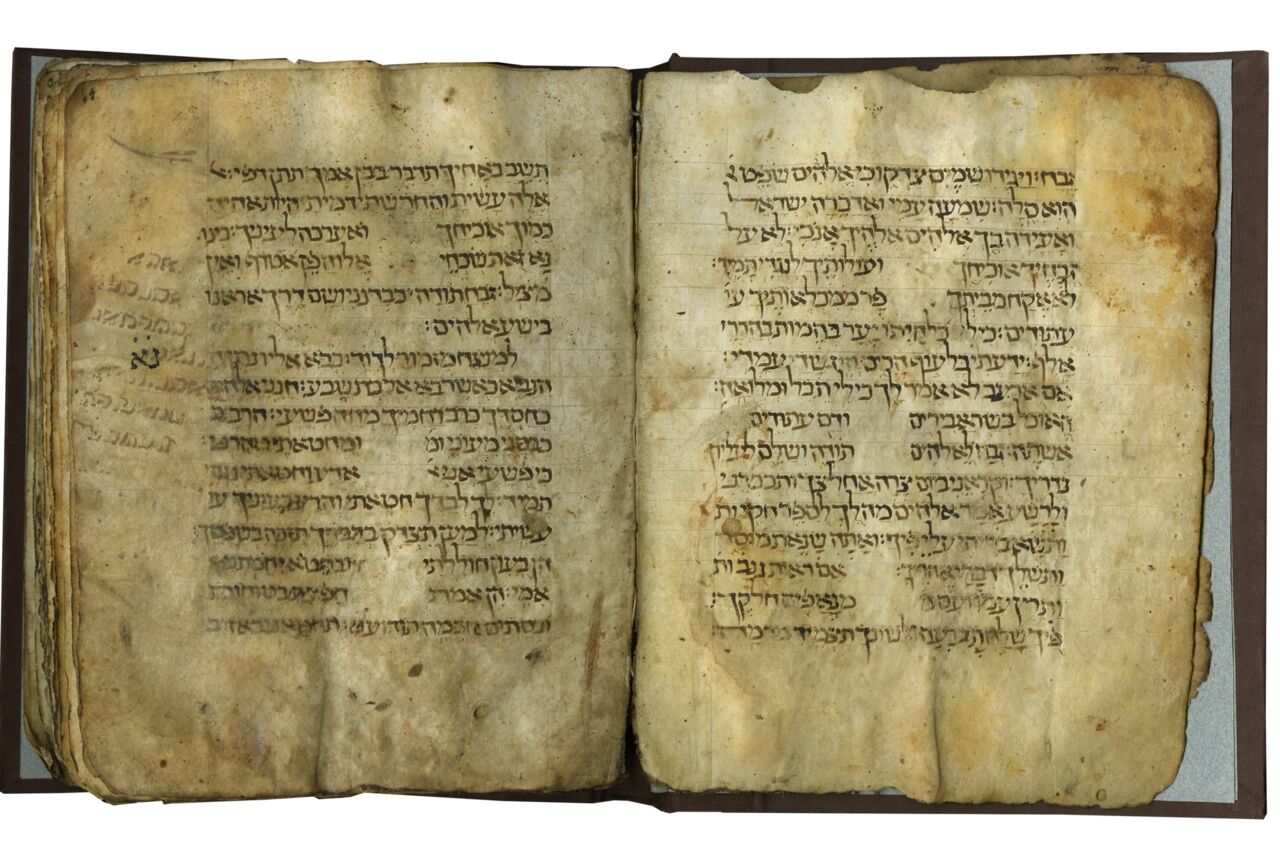 זבח: ויגידו שמים צדקו כי אלהים שפט
הוא סלה: שמעה עמי ואדברה ישראל
ואעידה בך אלהים אלהיך אנכי: לא על
זבחיך אוכיחך ועולותיך לנגדי תמיד:
לא אקח מביתך פר ממכלאותיך
עתודים: כי לי כל חיתו יער בהמות בהררי
אלף: ידעתי כל עוף הרים וזיז שדי עמדי:
אם ארעב לא אמר לך כי לי תבל ומלואה:
האוכל בשר אבירים ודם עתודים
אשתה: זבח לאלהים תודה ושלם לעליון
נדריך: וקראני ביום צרה אחלצך ותכבדני:
ולרשע אמר אלהים מה לך לספר חקי
ותשא בריתי עלי פיך: ואתה שנאת מוסר
ותשלך דברי אחריך: אם ראית גנב
ותרץ עמו ועם מנאפים חלקך:
פיך שלחת ברעה ולשונך תצמיד מרמה:
תשב באחיך תדבר בבן אמך תתן דפי:
אלה עשית והחרשתי דמית היות אהיה
כמוך אוכיחך ואערכה לעיניך: בינו
נא זאת שכחי אלוה פן אטרף ואין
מציל: זבח תודה יכבדנני ושם דרך אראנו
בישע אלהים:
נא
למנצח מזמור לדוד: בבוא אליו נתן
הנביא כאשר בא אל בת שבע: חנני אלהים
כחסדך כרוב רחמיך מחה פשעי: הרב
כבסני מעוני ומחטאתי טהרני:
כי פשעי אני אדע וחטאתי נגדי
תמיד: לך לבדך חטאתי והרע בעיניך
עשיתי: למען תצדק בדברך תזכה בשפטך:
הן בעון חוללתי ובחטא יחמתני
אמי: הן אמת חפצת בטוחות
ובסתום חכמה תודיעני: תחטאני באזוב